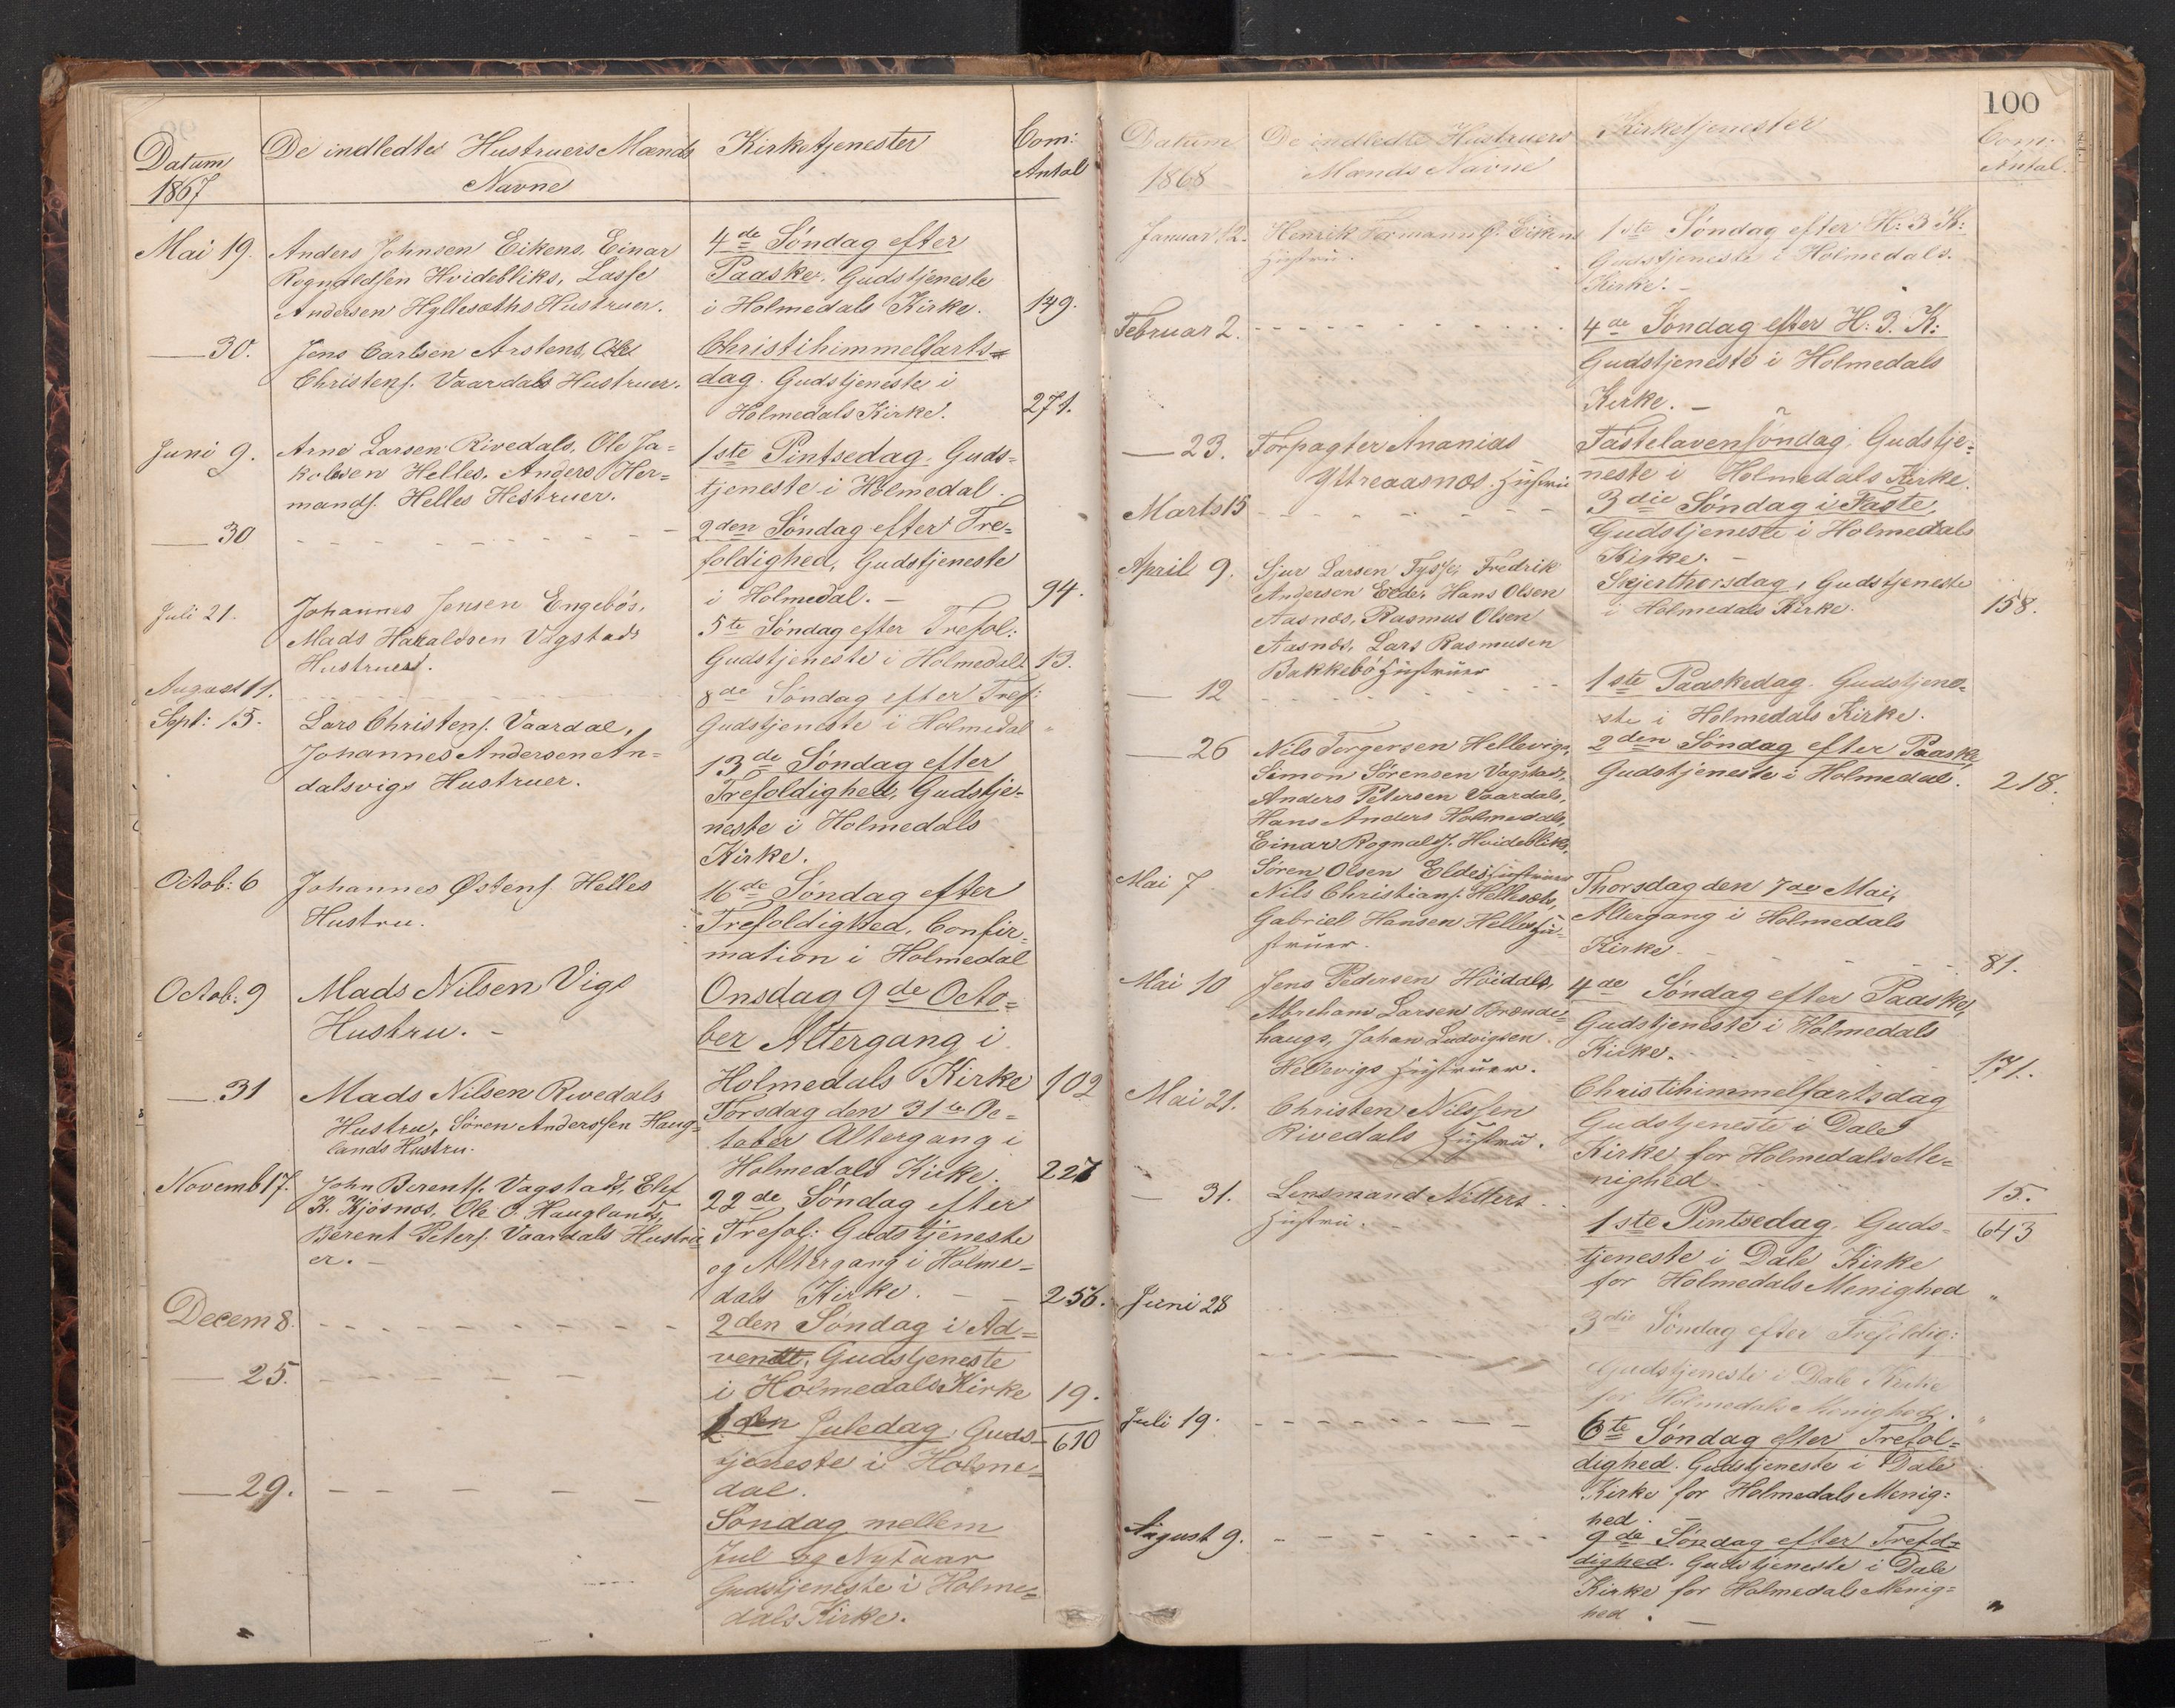 Datum
1867
De indledtes Hustruers Mænds
Navne
Kirketjenester
Com:
Antal
Mai 19.
Anders Johnsen Eikens, Einar
Rognaldsen Hvidebliks, Lasse
Andersen Hyllesæths Hustruer.
4de Søndag efter
Paaske. Gudstjeneste
i Holmedals Kirke.
149.
— 30.
Jens Carlsen Arstens, Ole
Christens. Vaardals Hustruer.
Christihimmelfarts=
dag. Gudstjeneste i
Holmedals Kirke.
271.
Juni 9.
Arne Larsen Rivedals, Ole Ja=
kobsen Helles, Anders Her=
mands. Helles Hustruer.
1ste Pintsedag. Guds=
tjeneste i Holmedal.
— 30
2den Søndag efter Tre=
foldighed, Gudstjeneste
i Holmedal. —
94.
Juli 21.
Johannes Jensen Engebøs,
Mads Haraldsen Vagstads
Hustruer.
5te Søndag efter Trefol:
Gudstjeneste i Holmedal
13.
August 11.
8de Søndag efter Tref:
Gudstjeneste i Holmedal
"
Sept: 15.
Lars Christens. Vaardal,
Johannes Andersen An=
dalsvigs Hustruer.
13de Søndag efter
Trefoldighed, Gudstje-
neste i Holmedals
Kirke.
Octob: 6
Johannes Østens. Helles
Hustru.
16de Søndag efter
Trefoldighed, Confir=
mation i Holmedal
Octob: 9
Mads Nilsen Vigs
Hustru. -
Onsdag 9de Octo=
ber Altergang i
Holmedals Kirke
102
— 31
Mads Nilsen Rivedals
Hustru, Søren Anderssen Haug=
lands Hustru.
Torsdag den 31te Oc=
tober Altergang i
Holmedals Kirke.
227
Novemb 17.
John Berents. Vagstad, Elef
R. Kjøsnes, Ole O. Hauglands,
Berent Peters. Vaardals Hustru=
er. —
22de Søndag efter
Trefol: Gudstjeneste
og Altergang i Holme=
dals Kirke. — —
256.
Decem 8.
2den Søndag i Ad=
vent, Gudstjeneste
i Holmedals Kirke
19.
— 25.
Juledag, Guds=
tjeneste i Holme=
dal.
610
— 29.
Søndag mellem
Jul og Nytaar
Gudstjeneste i Holme=
dals Kirke.
100
Datum
1868
De indledte Hustruers
Mænds Navne
Kirketjenester
Com:
Antal.
Januar 12.
Henrik Formann G. Eikens
Hustru.
1ste Søndag efter H: 3 K:
Gudstjeneste i Holmedals
Kirke. —
Februar 2.
4de Søndag efter H: 3. K:
Gudstjeneste i Holmedals
Kirke. —
— 23.
Forpagter Ananias
Yttreaasnes. Hustru
Fastelavensøndag, Gudstje=
neste i Holmedals Kirke.
Marts 15
3die Søndag i Faste,
Gudstjeneste i Holmedals
Kirke. —
April 9.
Sjur Larsen Tysse, Fredrik
Andersen Elde, Hans Olsen
Aasnes, Rasmus Olsen
Aasnes, Lars Rasmusen
Bakkebø Hustruer
Skjerthorsdag, Gudstjeneste
i Holmedals Kirke.
158.
— 12
1ste Paaskedag. Gudstjene=
ste i Holmedals Kirke.
— 26
Nils Torgersen Hellevigs,
Simon Sørensen Vagstads,
Anders Petersen Vaardals,
Hans Anders Holmedals,
Einar Rognalds. Hvidebliks,
Søren Olsen Eldes Hustruer
2den Søndag efter Paaske,
Gudstjeneste i Holmedal.
218.
Mai 7
Nils Christians. Hellesæts,
Gabriel Hansen Helles Hu=
struer.
Thorsdag den 7de Mai,
Altergang i Holmedals
Kirke
81.
Mai 10
Jens Pedersen Høidals,
Abreham Larsen Brænde=
haugs, Johan Ludvigsen
Hellevigs Hustruer.
4de Søndag efter Paaske,
Gudstjeneste i Holmedals
Kirke.
171.
Mai 21.
Christen Nilssen
Rivedals Hustru.
Christihimmelfartsdag
Gudstjeneste i Dale
Kirke for Holmedals Me=
nighed
15.
— 31.
Lensmand Nitters
Hustru.
1ste Pintsedag. Guds=
tjeneste i Dale Kirke
for Holmedals Menighed
643
"
Juni 28
3die Søndag efter Trefoldig:
Gudstjeneste i Dale Kirke
for Holmedals Menighed.
"
Juli 19.
6te Søndag efter Trefol=
dighed. Gudstjeneste i Dale
Kirke for Holmedals Menig=
hed. —
August 9.
9de Søndag efter Trefol=
dighed. Gudstjeneste i Dale
Kirke for Holmedals Menig=
hed. —
"